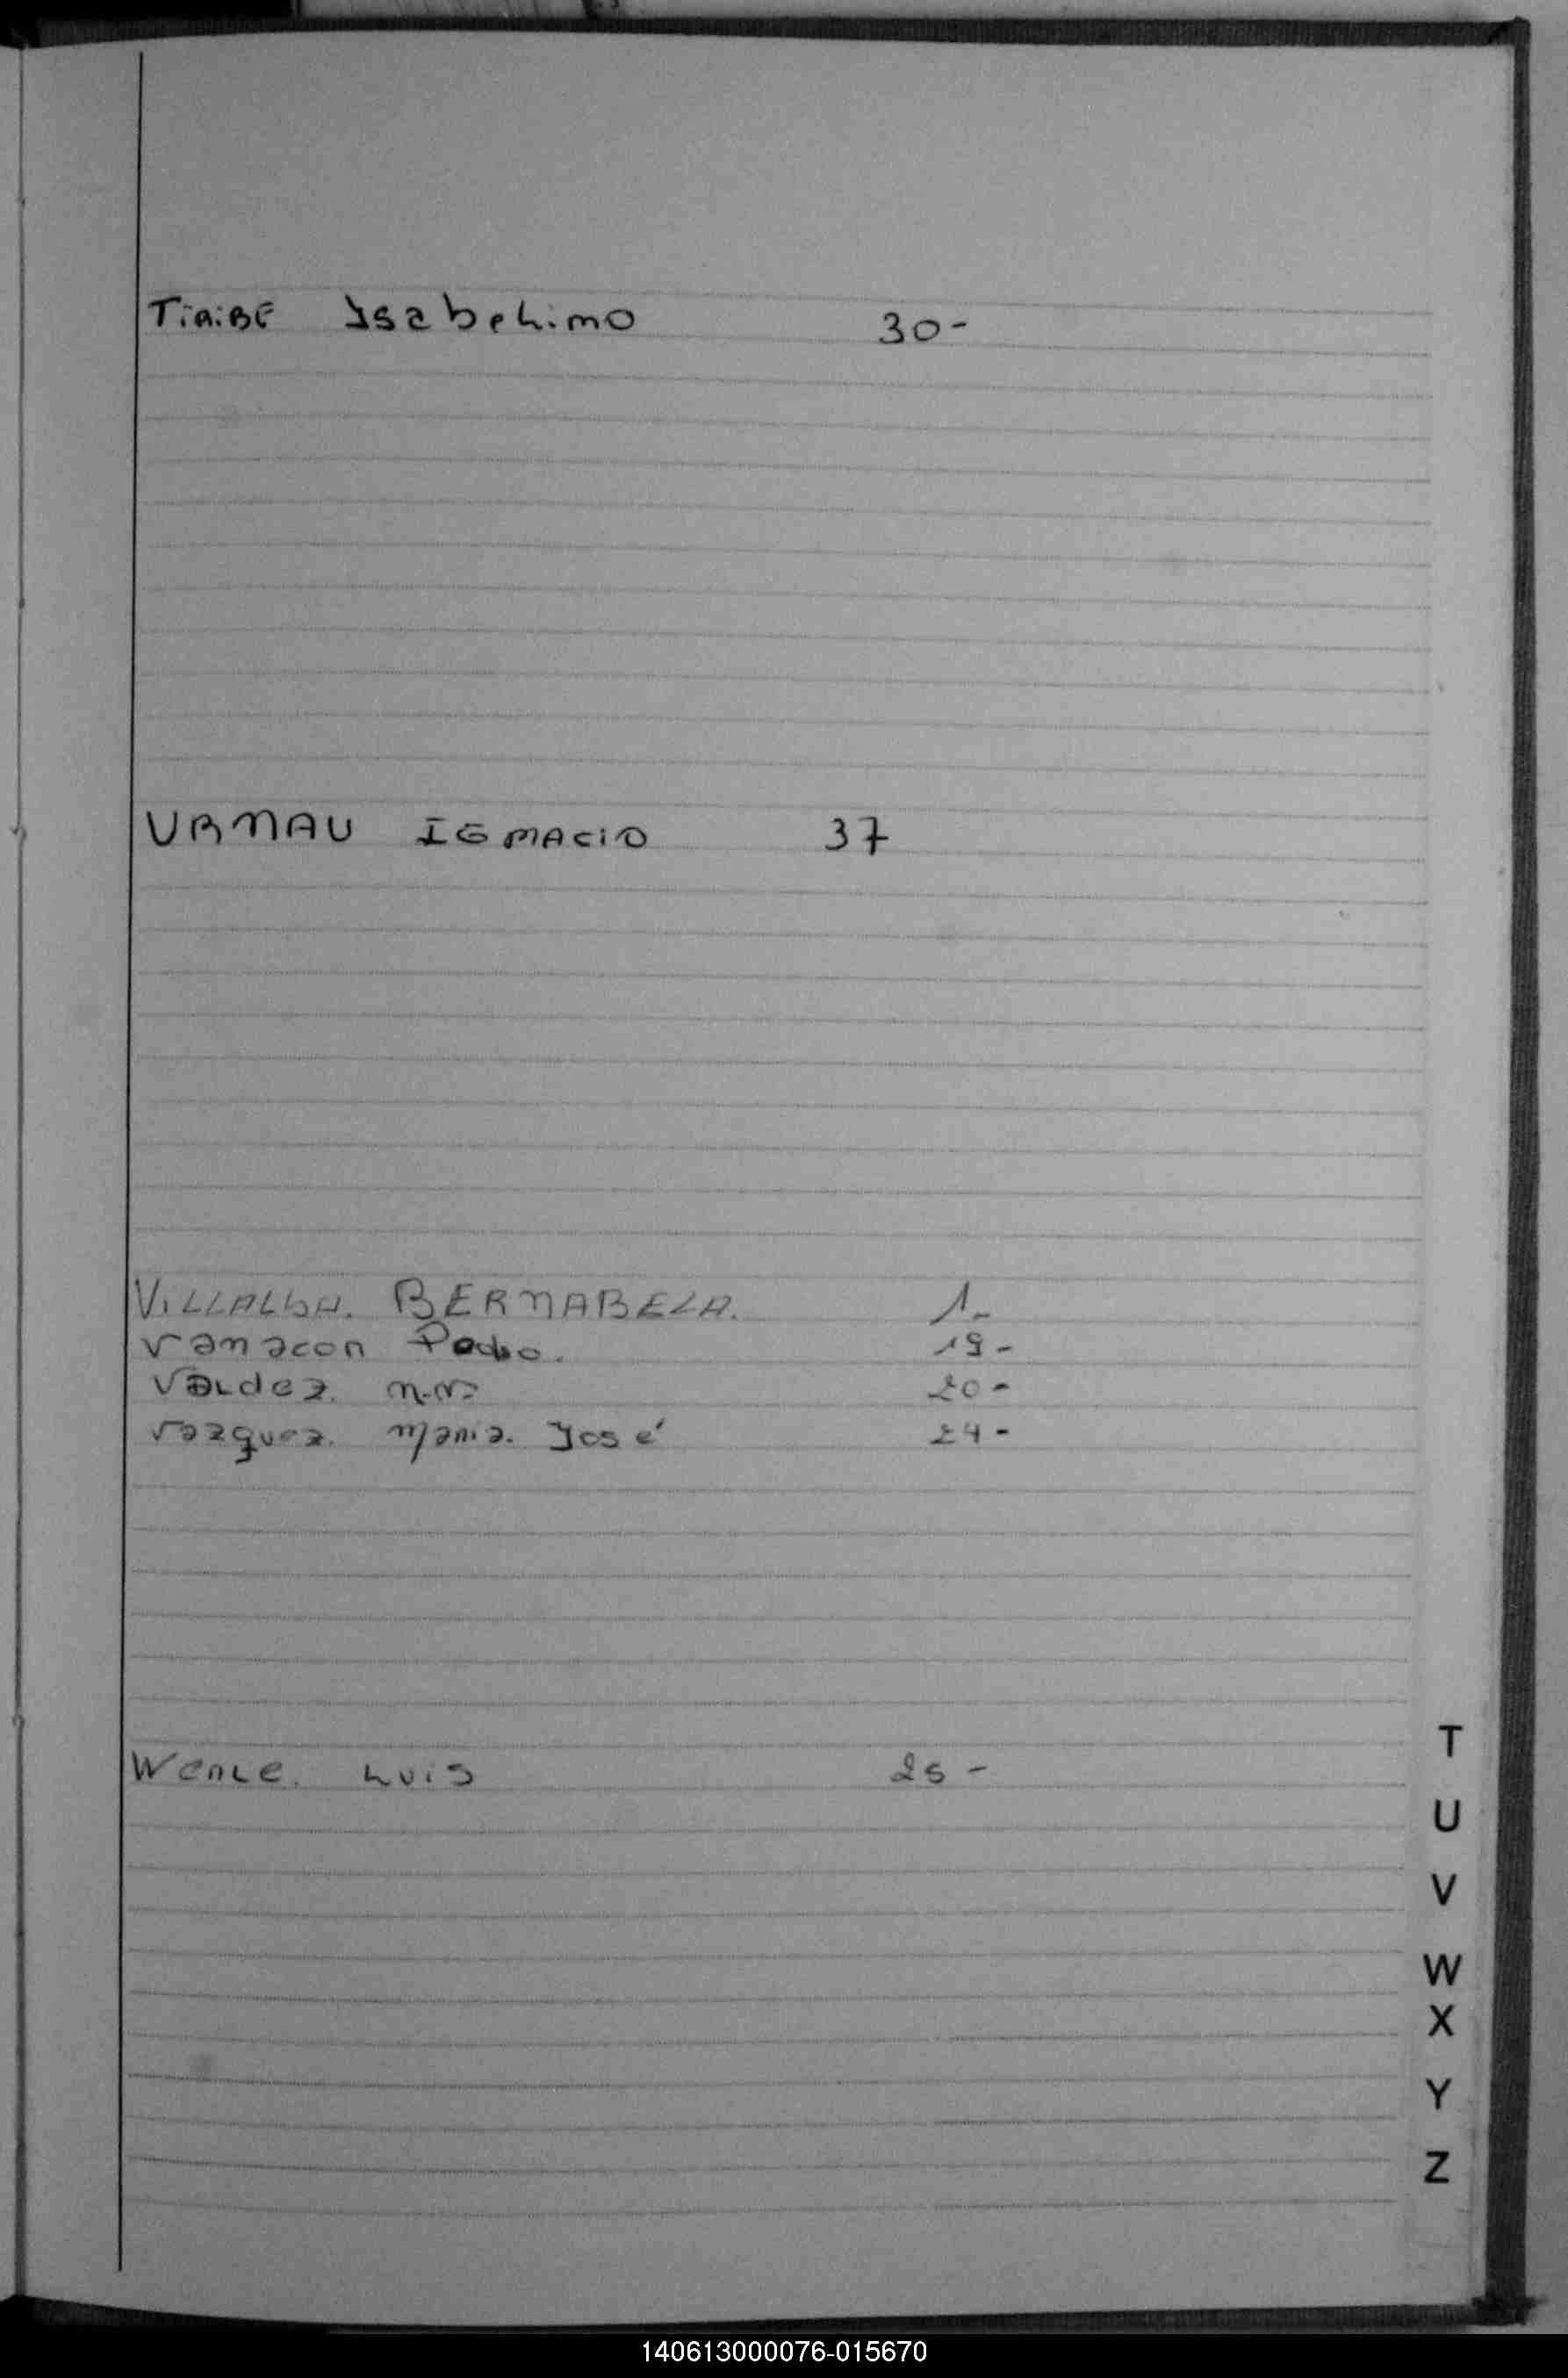 TiRiBE Isabelino 30-
URNAU IGNACIO 37
VILLALbA. BERNABELA. 1-
Varacon Pedro. 19-
VaLdez. n.n. 20-
Vazquez. Maria. José 24-
WenLe. Luis 25-
T
U
V
W
X
Y
Z
140613000076-015670